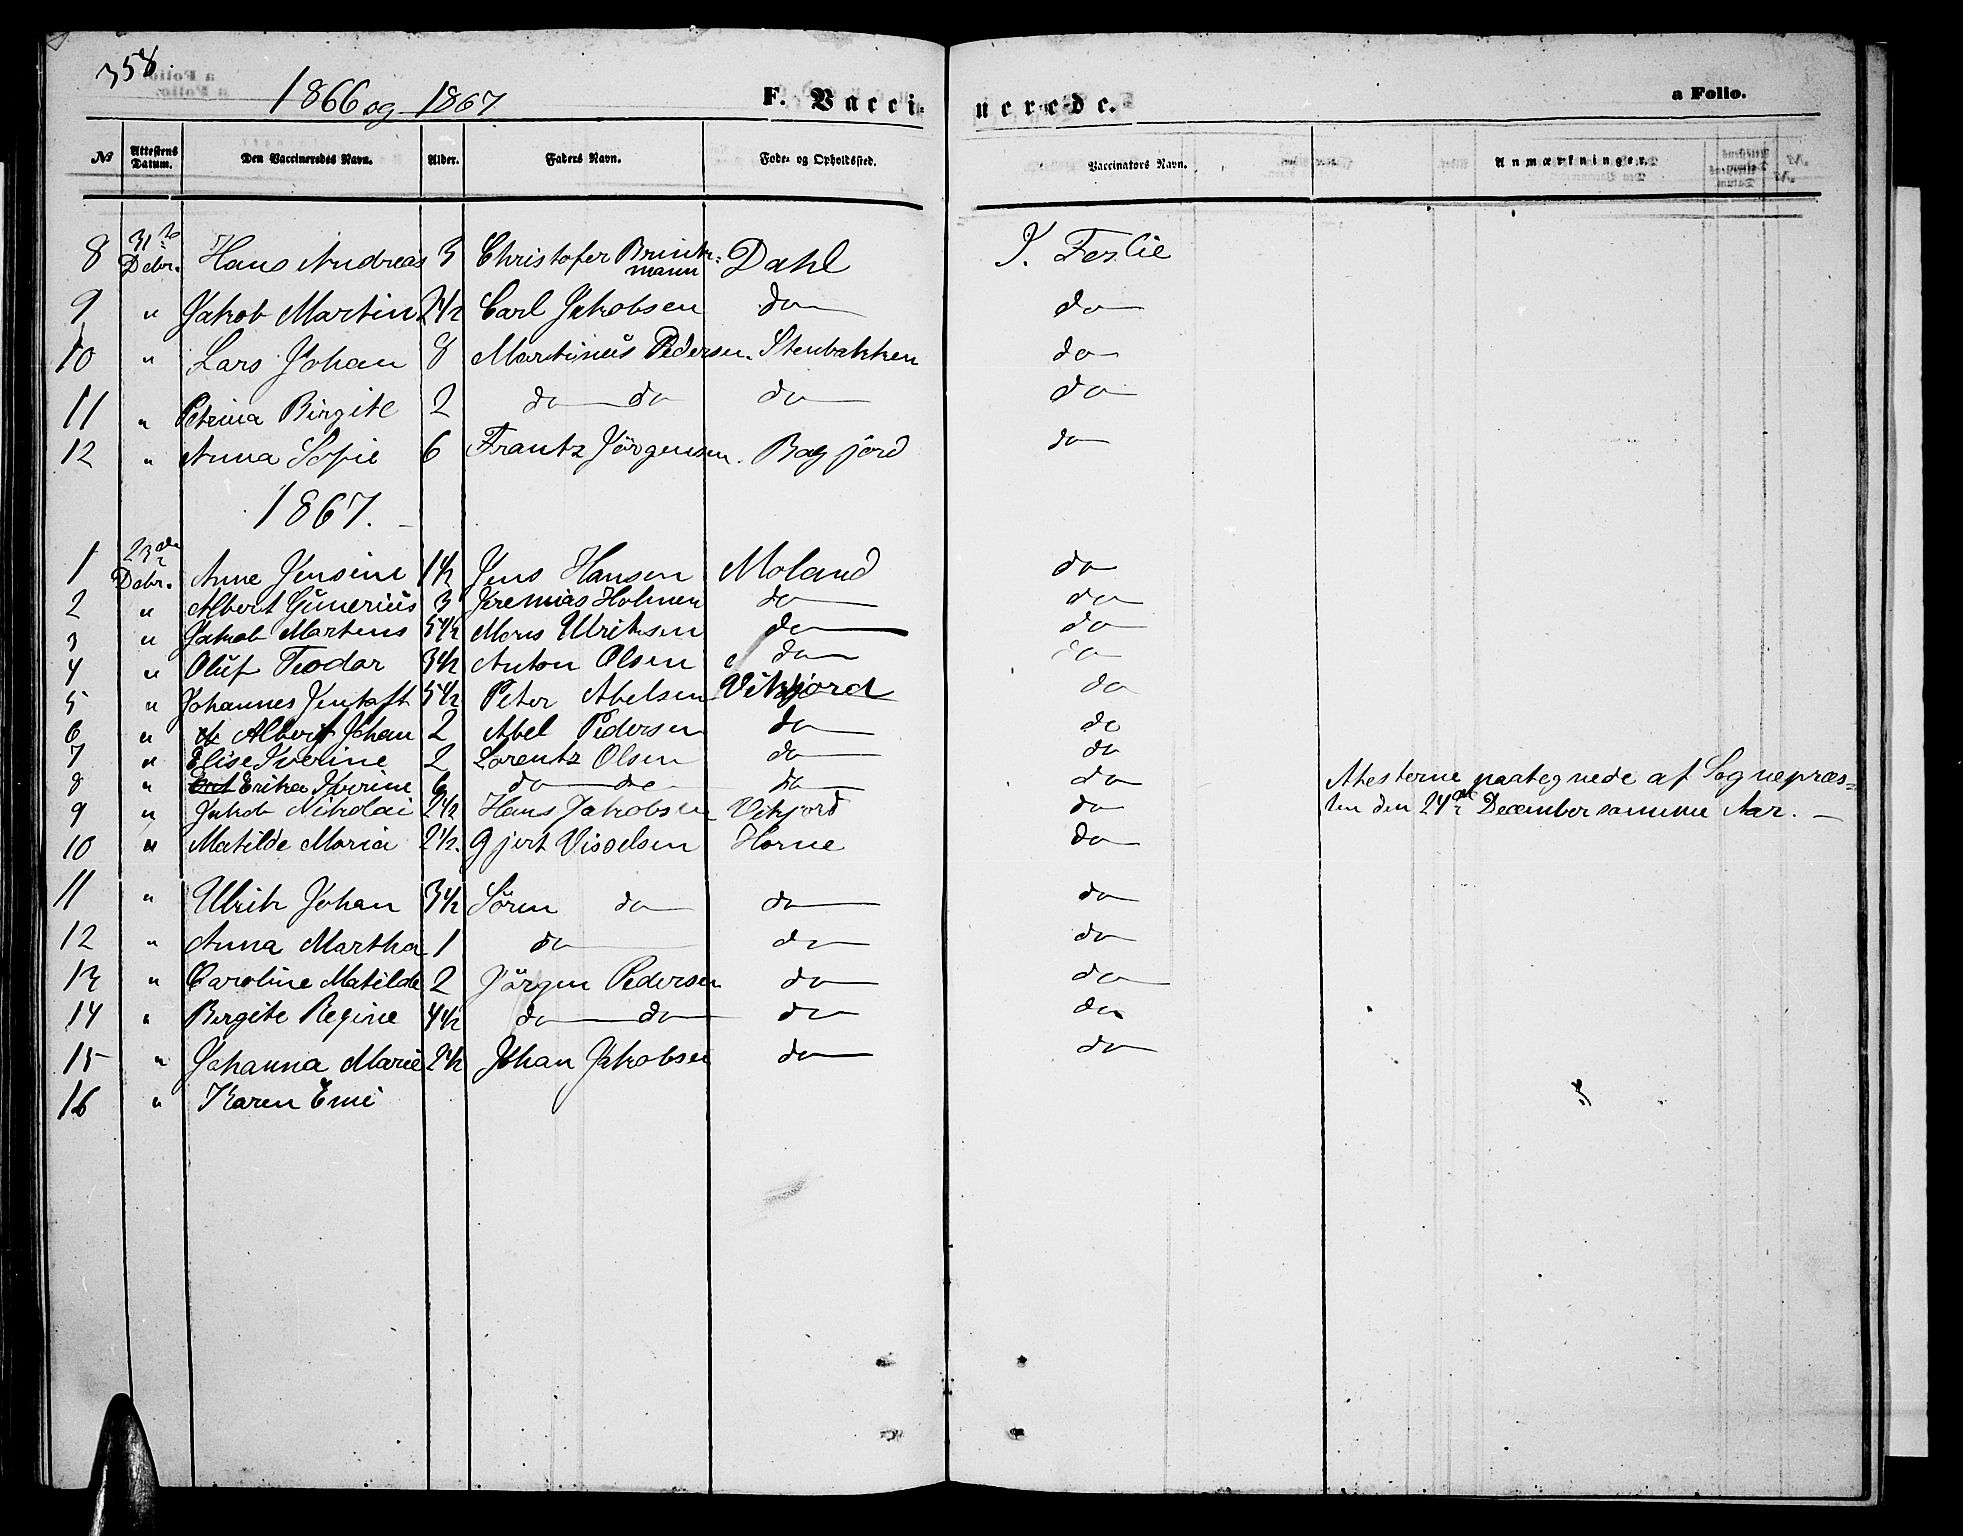 358.
1866 og 1867
F. Vaccinerede.
a Folio.
№ Attestens Datum. Den Vaccineredes Navn. Alder. Faders Navn. Føde- og Opholdssted. Vaccinators Navn. Anmærkninger.
8 31te Debr. Hans Andreas 3 Christofer Brinkmann Dahl J. Feslie
9 " Jakob Martin 2 1/2 Carl Jakobsen do do
10 " Lars Johan 8 Martinus Pedersen Stenbakken do
11 " Petrina Birgite 2 do do do do
12 " Anna Sofie 6 Frantz Jörgensen. Bagjord do
1867.
1 23de Debr. Anne Jensine 1 1/2 Jens Hansen Moland do
2 " Albert Gunerius 3 Jremias Holmen do do
3 " Jakob Martens 5 1/2 Mons Ulriksen do do
4 " Oluf Teodor 3 1/2 Anton Olsen do do
5 " Johannes Jentoft 5 1/2 Peter Abelsen Vikjord do
6 " Albert Johan 2 Abel Pedersen do do
7 " Elise Iverine 2 Lorentz Olsen do do
8 " Erika Iverine 6 do do do do Atesterne paategnede af Sognepræs-
9 " Jakob Nikolai 2 1/2 Hans Jakobsen Vikjord do ten den 24de December samme Aar. —
10 " Matilde Maria 2 1/2. Gjert Visselsen Horne do
11 " Ulrik Johan 3 1/2 Sören do do do
12 " Anna Martha 1 do do do
13 " Caroline Matilde 2 Jörgen Pedersen do do
14 " Birgite Regine 4 1/2 do do do do
15 " Johanna Marie 2 1/2 Johan Jakobsen do do
16 " Karen Emi